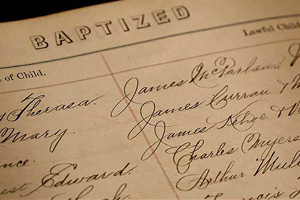 BAPTIZED
of Child.
Lawful Child
Theresa.
Mary.
Edward.
James McParland
James Curran
James Kline
Charles Myers
Arthur